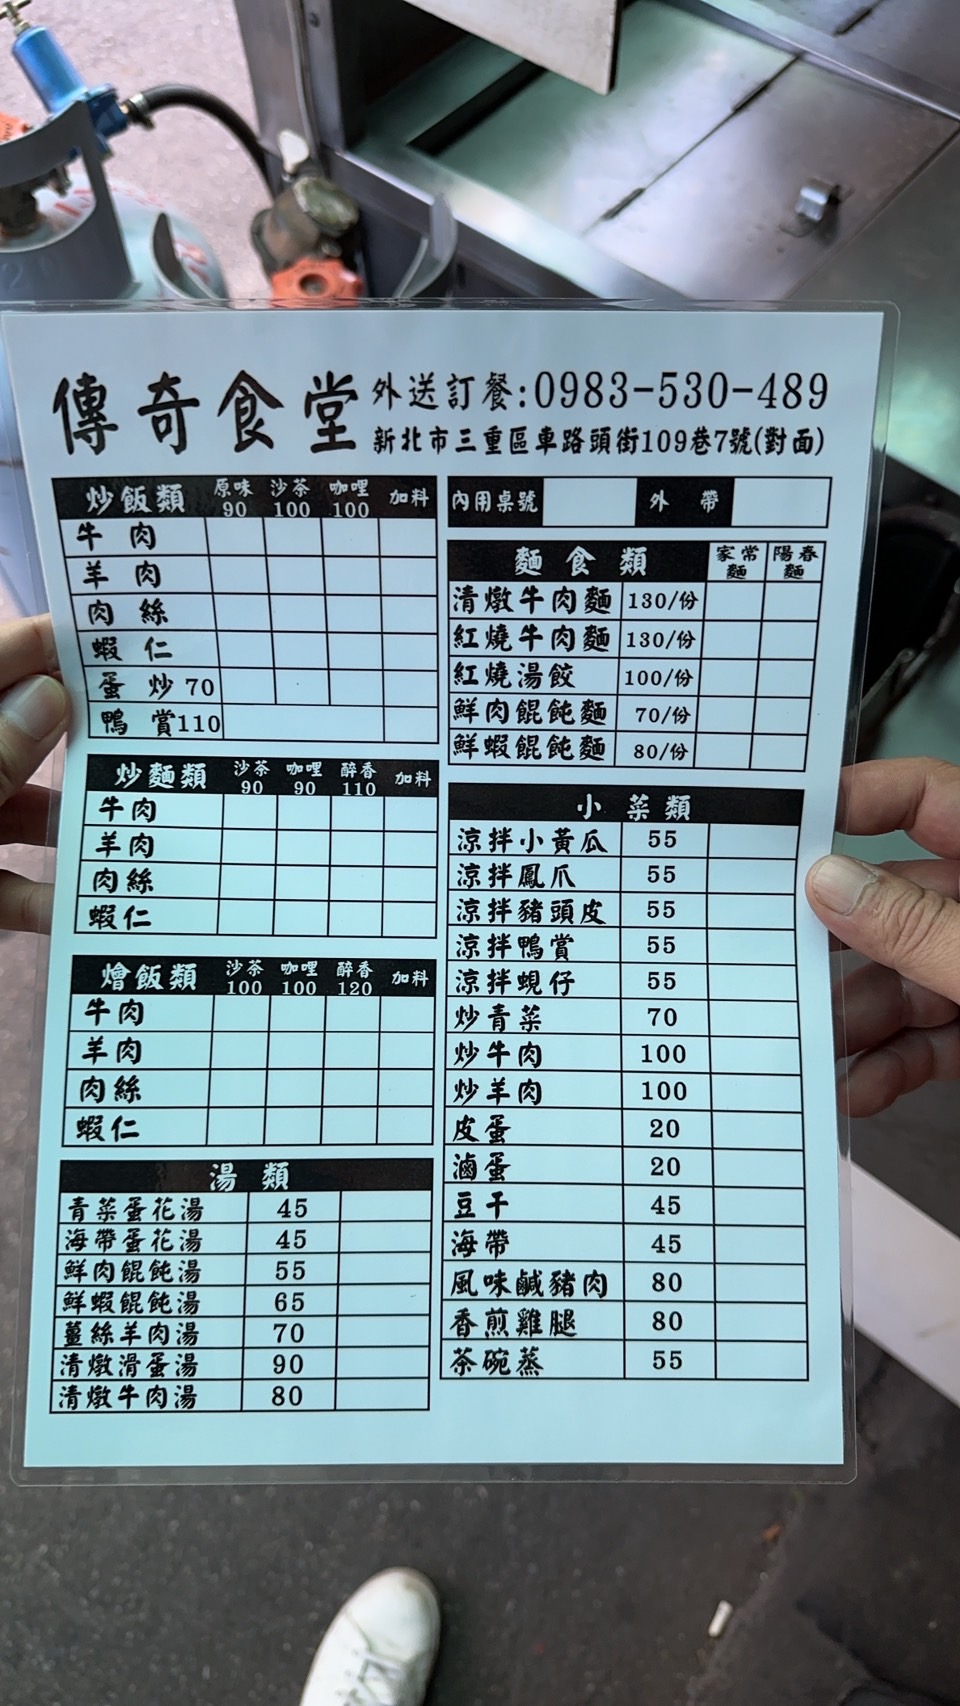 傳奇食堂
外送訂餐:0983-530-489
新北市三重區車路頭街109巷7號(對面)
炒飯類 原味 90 沙茶 100 咖哩 100 加料
牛肉
羊肉
肉絲
蝦仁
蛋炒 70
鴨賞110
炒麵類 沙茶 90 咖哩 90 醉香 110 加料
牛肉
羊肉
肉絲
蝦仁
燴飯類 沙茶 100 咖哩 100 醉香 120 加料
牛肉
羊肉
肉絲
蝦仁
湯類
青菜蛋花湯 45
海帶蛋花湯 45
鮮肉餛飩湯 55
鮮蝦餛飩湯 65
薑絲羊肉湯 70
清燉滑蛋湯 90
清燉牛肉湯 80
內用桌號 外帶
麵食類 家常麵 陽春麵
清燉牛肉麵 130/份
紅燒牛肉麵 130/份
紅燒湯餃 100/份
鮮肉餛飩麵 70/份
鮮蝦餛飩麵 80/份
小菜類
涼拌小黃瓜 55
涼拌鳳爪 55
涼拌豬頭皮 55
涼拌鴨賞 55
涼拌蜆仔 55
炒青菜 70
炒牛肉 100
炒羊肉 100
皮蛋 20
滷蛋 20
豆干 45
海帶 45
風味鹹豬肉 80
香煎雞腿 80
茶碗蒸 55